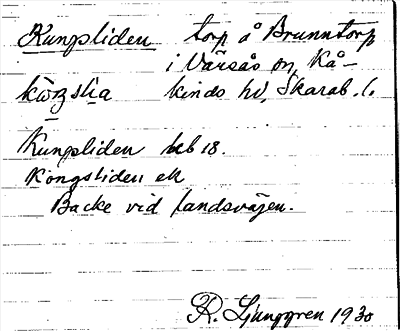 Kungsliden torp å Brunntorp
i Värsås sn, Kå-
kinds hd, Skarab. l.
Kungsliden hcb 18.
Kongsliden ek
Backe vid landsvägen.
R. Ljunggren 1930